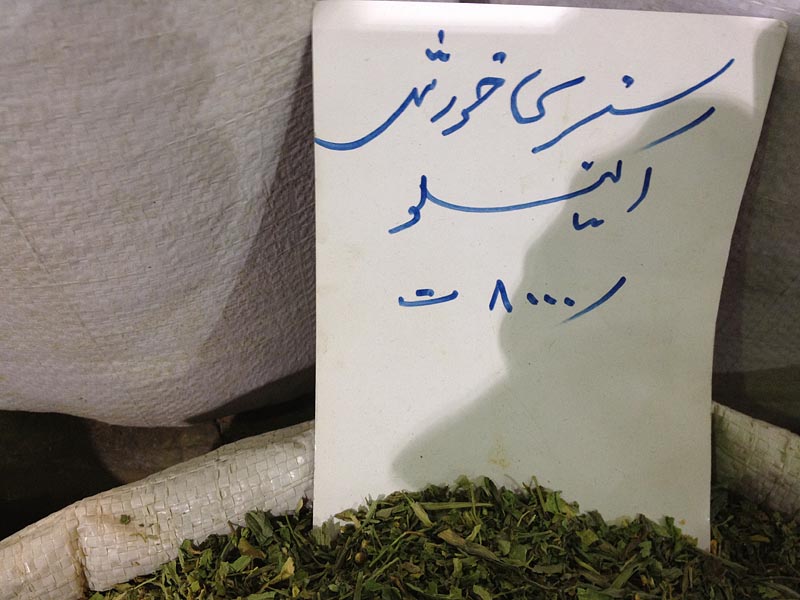 سبزی خورشتی
۱ کیلو
۸۰۰۰ ت